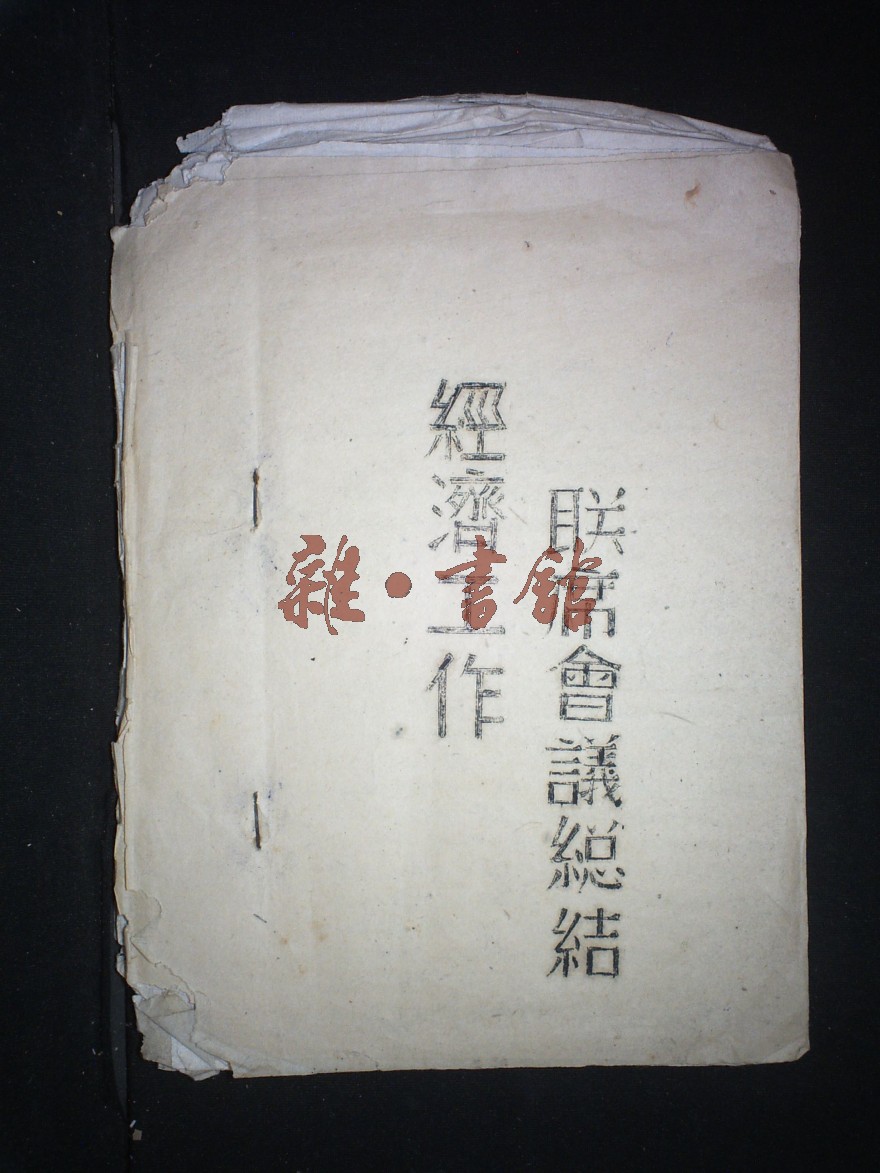 經濟工作
联席會議総結
雜·書館